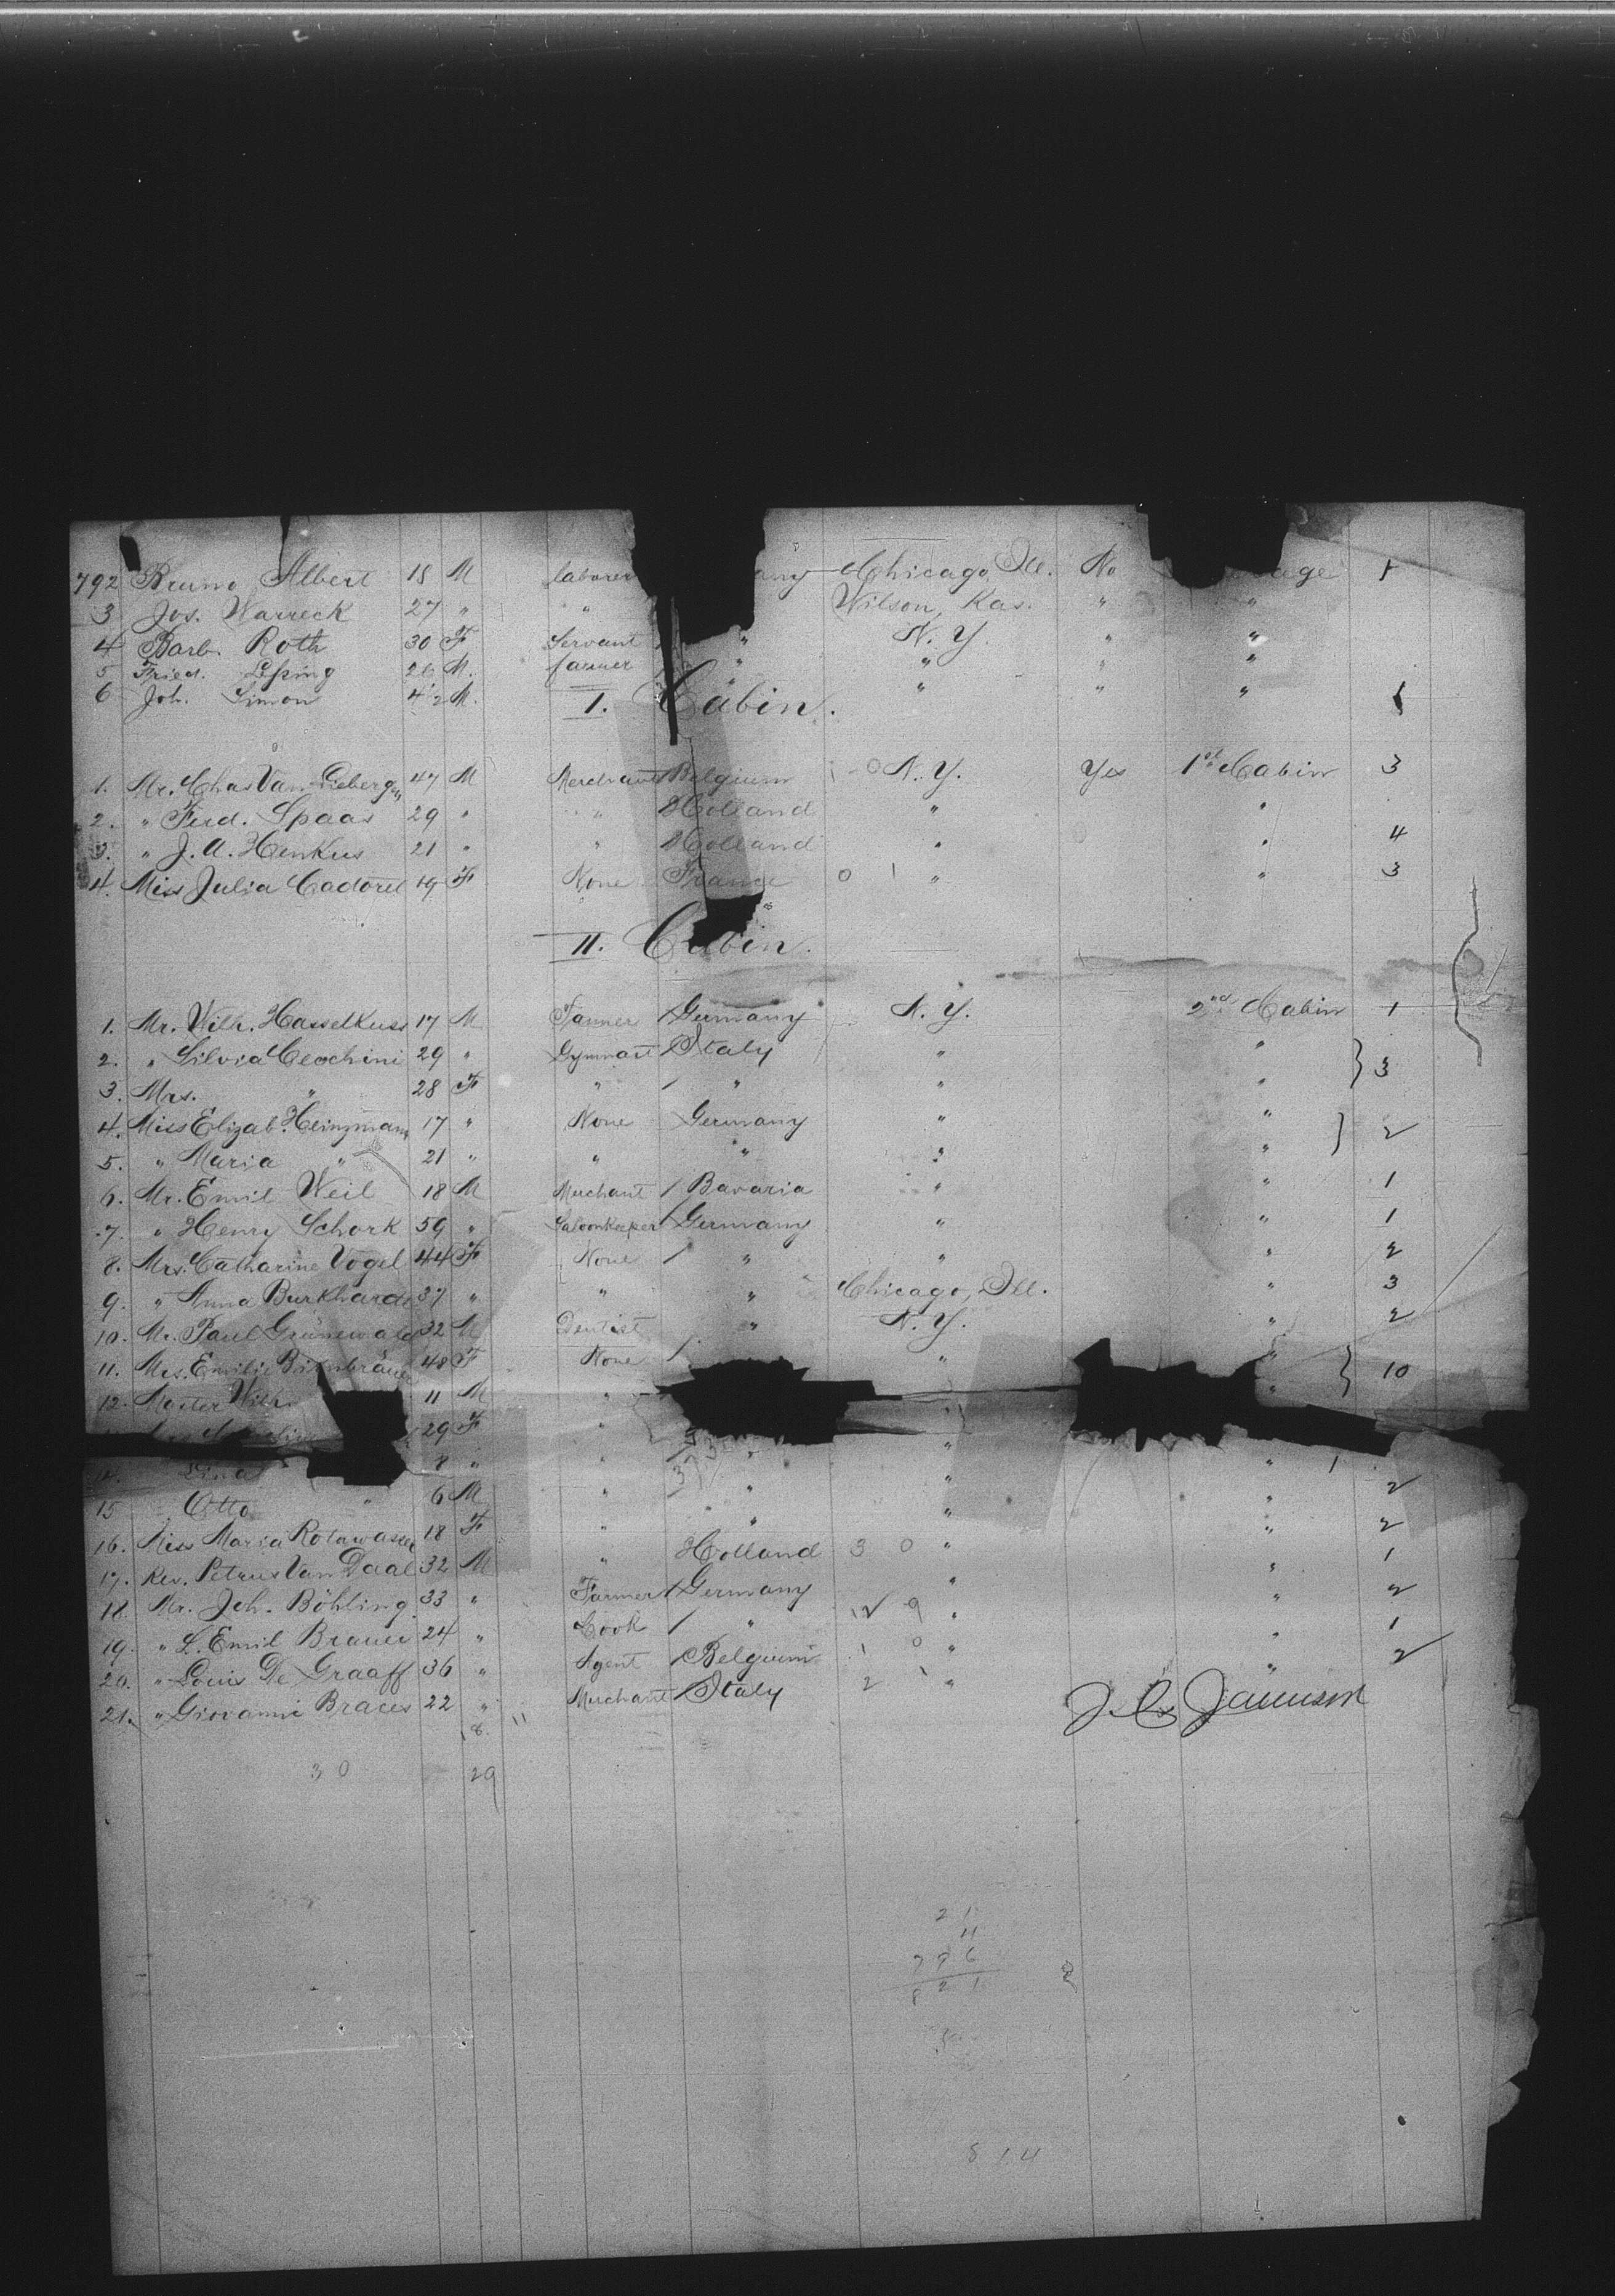 792 Bruno Albert 18 M laborer any Chicago, Ill. No age 1
3 Jos. Warreck 27 " " Wilson, Kas. " "
4 Barb. Roth 30 F Servant " N.Y. " "
5 Fried. 26 M. farmer " " " "
6 Joh. Simon 4 M. " " " "
I. Cabin.
1. Mr. Chas Van 47 M Merchant Belgium N.Y. Yes 1st Cabin 3
2. " Ferd. Spaas 29 " " Holland " "
3. " J.A. Henkus 21 " " Holland " " 4
4. Miss Julia Cadoret 19 F None France 0 1 " " 3
II. Cabin.
1. Mr. Wilh. Hasselkuss 17 M Germany N.Y. 2nd Cabin 1
2. " Silvio 29 " Gymnast Italy " " 3
3. Mrs. " 28 F " " " "
4. Miss Elizab. Heinzmann 17 " None Germany " " 2
5. " Maria " 21 " " " " "
6. Mr. Emil Weil 18 M Merchant Bavaria " " 1
7. " Henry Schork 59 " Saloonkeeper Germany " " 1
8. Mrs. Catharine Vogel 44 F None " " " 2
9. " Anna Burkhardt 37 " " " Chicago, Ill. " 3
10. Mr. Paul Grünewald 32 M Dentist " N.Y. " 2
11. Mrs. Emilie 48 F None " " 10
12. Master Wilh. 11 M " "
29 F " "
14. Lina 8 " " " " " 1
15 Otto " 6 M " " " " 2
16. Miss Maria Rotawasser 18 F " " " " 2
17. Rev. Petrus Van Daal 32 M " Holland 3 0 " " 1
18. Mr. Joh. Böhling 33 " Farmer Germany " " 2
19. " L. Emil Brauer 24 " Cook " 9 " " 1
20. " Louis De Graaff 36 " Agent Belgium 1 0 " " 2
21. " Giovanni Braces 22 " Merchant Italy 2 1 "
18. 11
J. C. Jamison
30 29
21
4
796
821
814